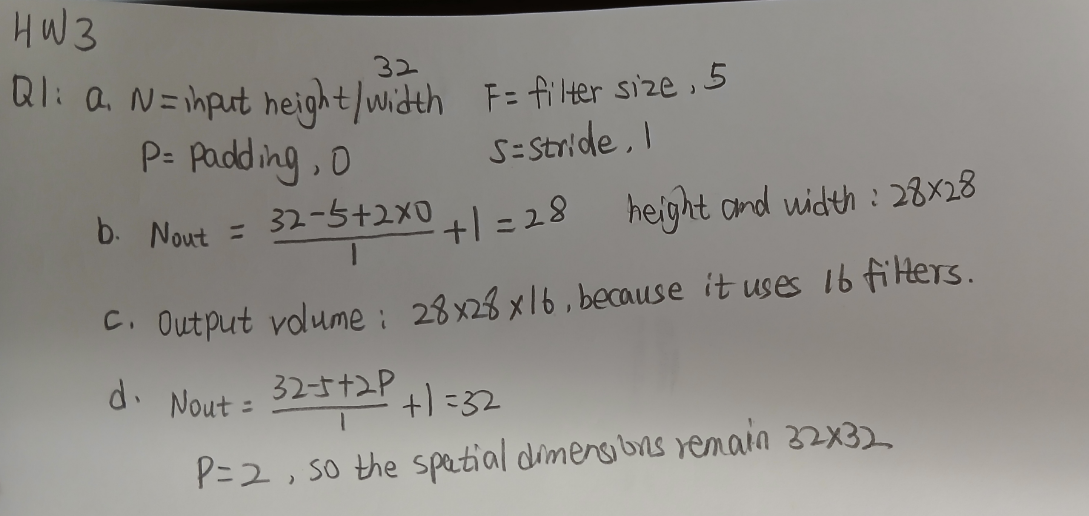 HW3
Q1: a. N = input height/width 32 F = filter size, 5
P = Padding, 0 S = stride, 1
b. Nout = (32-5+2×0)/1 + 1 = 28 height and width : 28×28
c. Output volume : 28×28×16, because it uses 16 filters.
d. Nout = (32-5+2P)/1 + 1 = 32
P=2, so the spatial dimensions remain 32×32